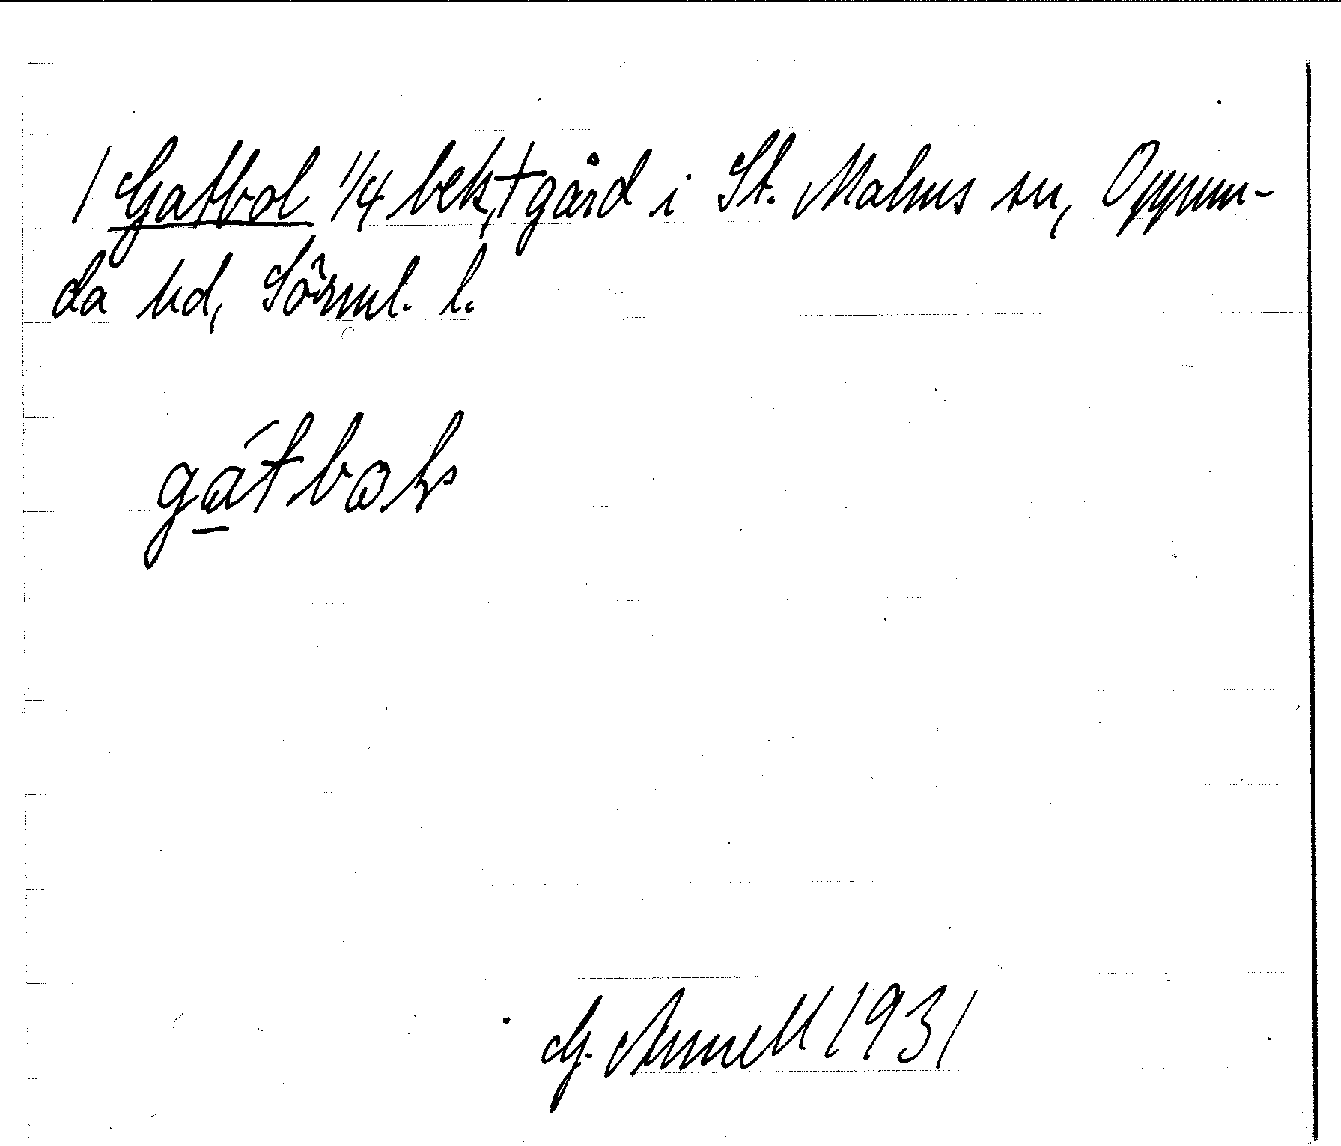 1 Gatbol 1/4 bek,tgård i St. Malms sn, Oppun-
da hd, Sörml. l.
G. Annell 1931